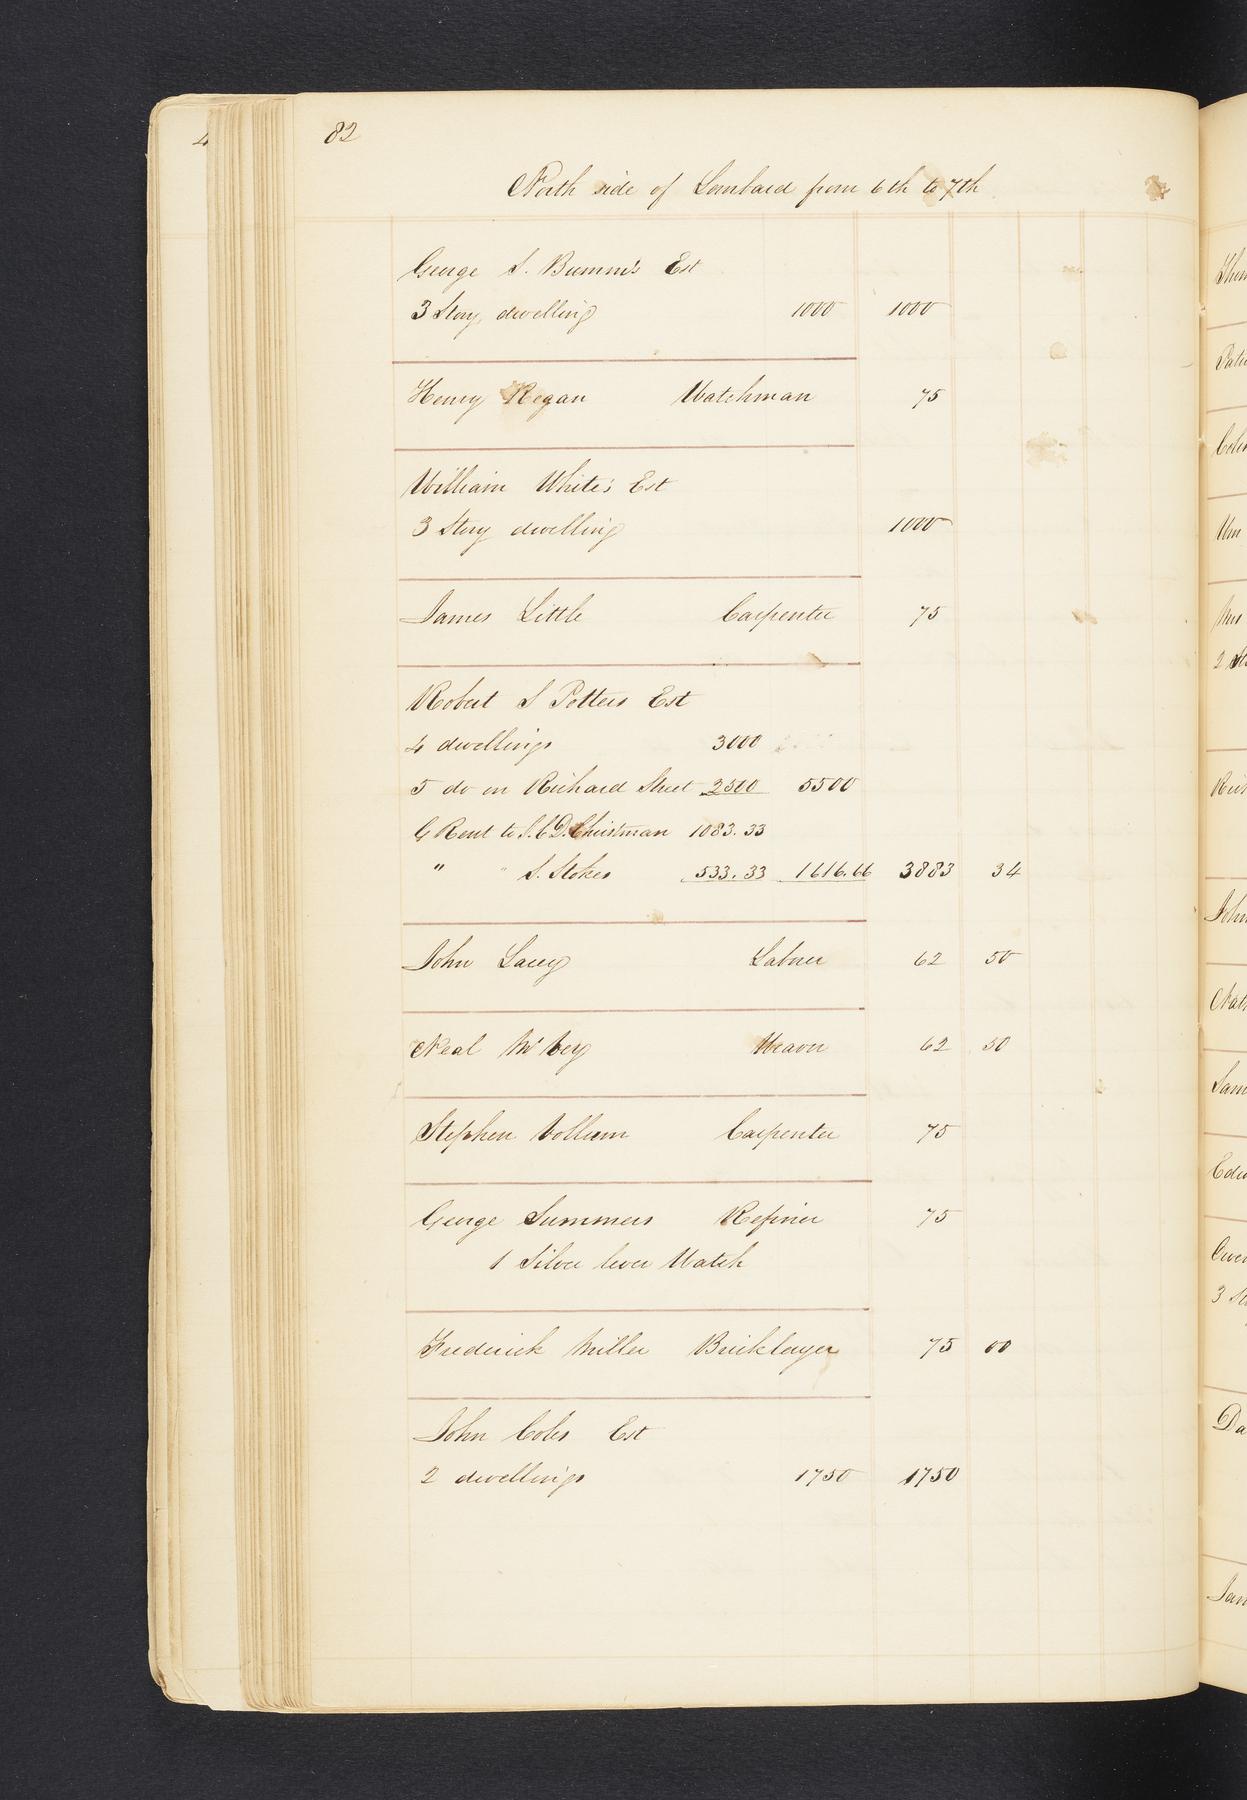 82
North side of Lombard from 6th to 7th
George S. Bumm's Est
3 Story dwelling 1000 1000
Henry Regan Watchman 75
William White's Est
3 Story dwelling 1000
James Little Carpenter 75
Robert S Potters Est
4 dwellings 3000
5 do on Richard Street 2500 5500
G Rent to S. C D. Christman 1083.33
" " S. Stokes 533.33 1616.66 3883 34
John Lacey Laborer 62 50
Neal Mc Weaver 62 50
Stephen Collum Carpenter 75
George Summers Refiner 75
1 Silver lever Watch
Frederick Miller Bricklayer 75 00
John Coles Est
2 dwellings 1750 1750